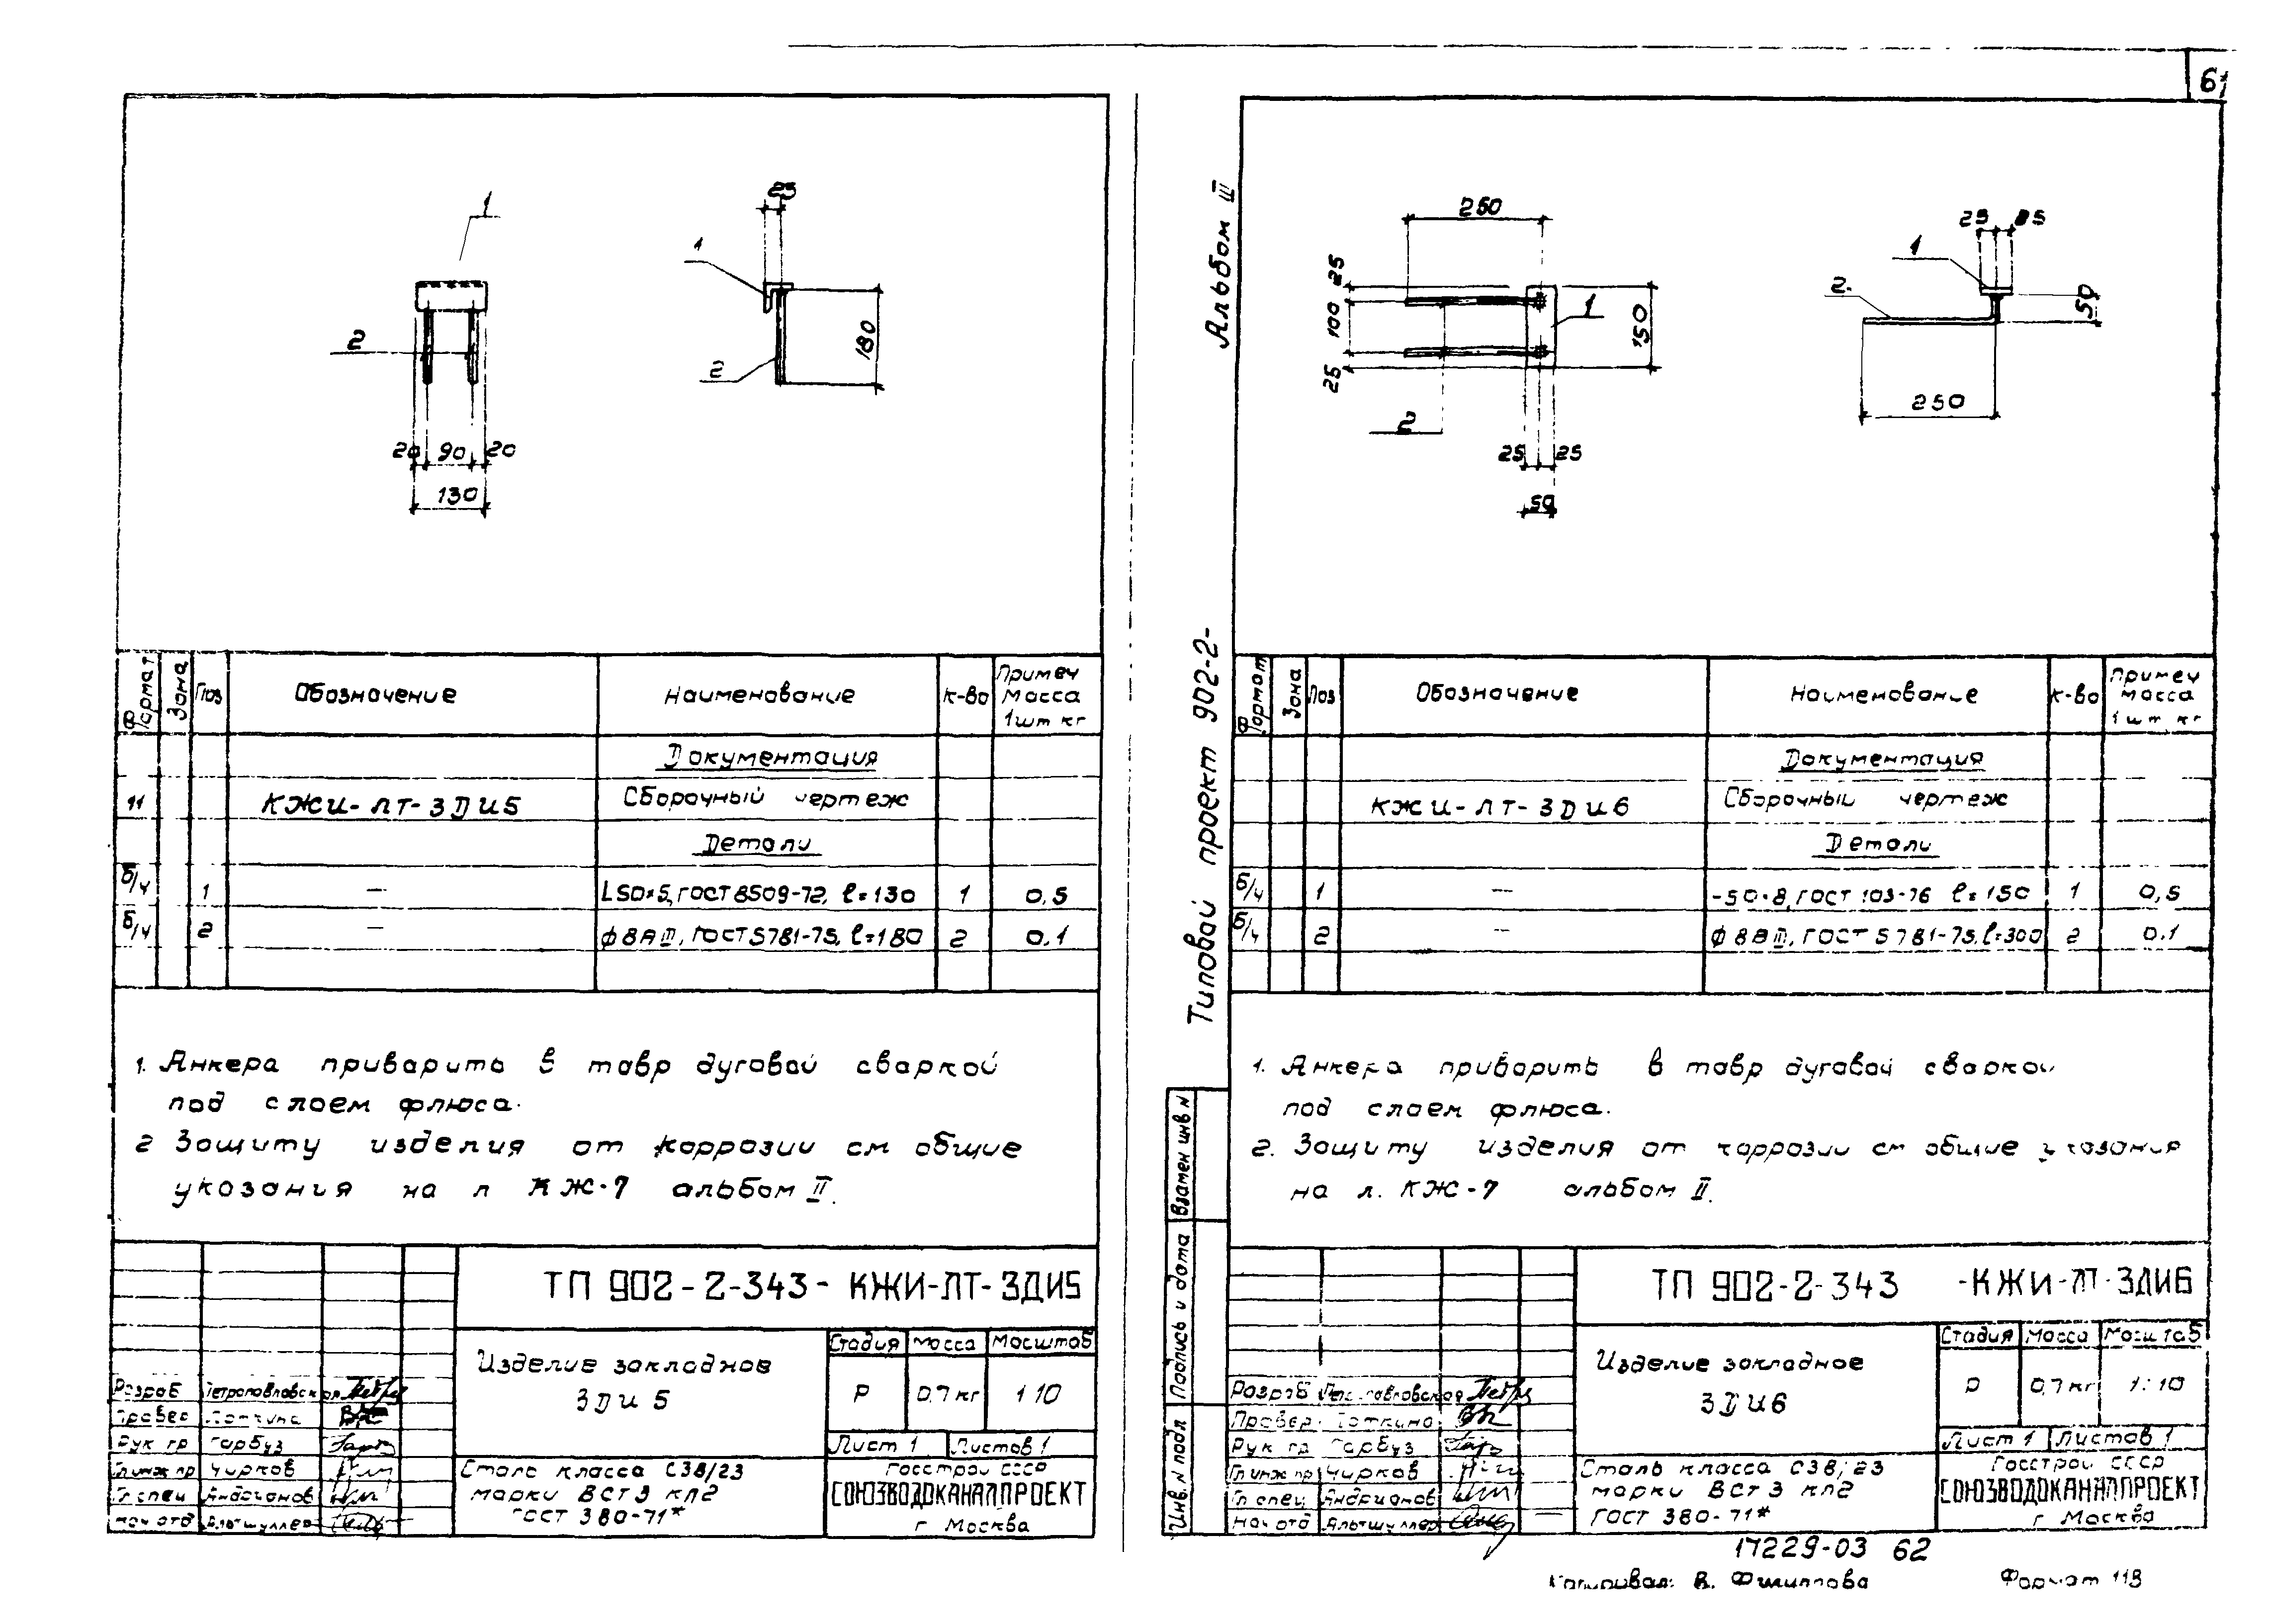 61
1
2
20 90 20
130
25
1
2
180
Формат
Зона
Поз
Обозначение
Наименование
К-во
Примеч
Масса
1шт кг
Документация
11 КЖИ-ЛТ-3ДИ5 Сборочный чертеж
Детали
б/ч 1 — L50×5, ГОСТ 8509-72, ℓ=130 1 0,5
б/ч 2 — ф8АIII, ГОСТ 5781-75, ℓ=180 2 0.1
1. Анкера приварить в тавр дуговой сваркой
под слоем флюса.
2 Защиту изделия от коррозии см общие
указания на л КЖ-7 альбом II.
ТП 902-2-343- КЖИ-ЛТ-3ДИ5
Изделие закладное
3ДИ5
Стадия Масса Масштаб
Р 0.7кг 1 10
Лист 1 Листов 1
Сталь класса С38/23
марки ВСт3 кп2
ГОСТ 380-71*
Госстрой СССР
СОЮЗВОДОКАНАЛПРОЕКТ
г Москва
Разраб
Провер
Рук гр Гарбуз
Гл инж пр Чирков
Гл спец
Нач отд Альтшуллер
Альбом III
Типовой проект 902-2-
Взамен инв N
Подпись и дата
Инв. N подл
250
25
100
25
150
1
2
25 25
50
25
1
2.
50
250
Формат
Зона
Поз
Обозначение
Наименование
К-во
Примеч
Масса
1 шт кг
Документация
КЖИ-ЛТ-3ДИ6 Сборочный чертеж
Детали
б/ч 1 — -50×8, ГОСТ 103-76 ℓ=150 1 0,5
б/ч 2 — ф8АIII, ГОСТ 5781-75, ℓ=300 2 0.1
1. Анкера приварить в тавр дуговой сваркой
под слоем флюса.
2. Защиту изделия от коррозии см общие указания
на л. КЖ-7 альбом II.
ТП 902-2-343 -КЖИ-ЛТ-3ДИ6
Изделие закладное
3ДИ6
Стадия Масса Масштаб
Р 0,7кг 1:10
Лист 1 Листов 1
Сталь класса С38/23
марки ВСт3 кп2
ГОСТ 380-71*
Госстрой СССР
СОЮЗВОДОКАНАЛПРОЕКТ
г. Москва
Разраб
Провер.
Рук гр Гарбуз
Гл инж пр Чирков
Гл спец Андрианов
Нач отд Альтшуллер
17229-03 62
Копировал: В. Филиппова Формат 11В